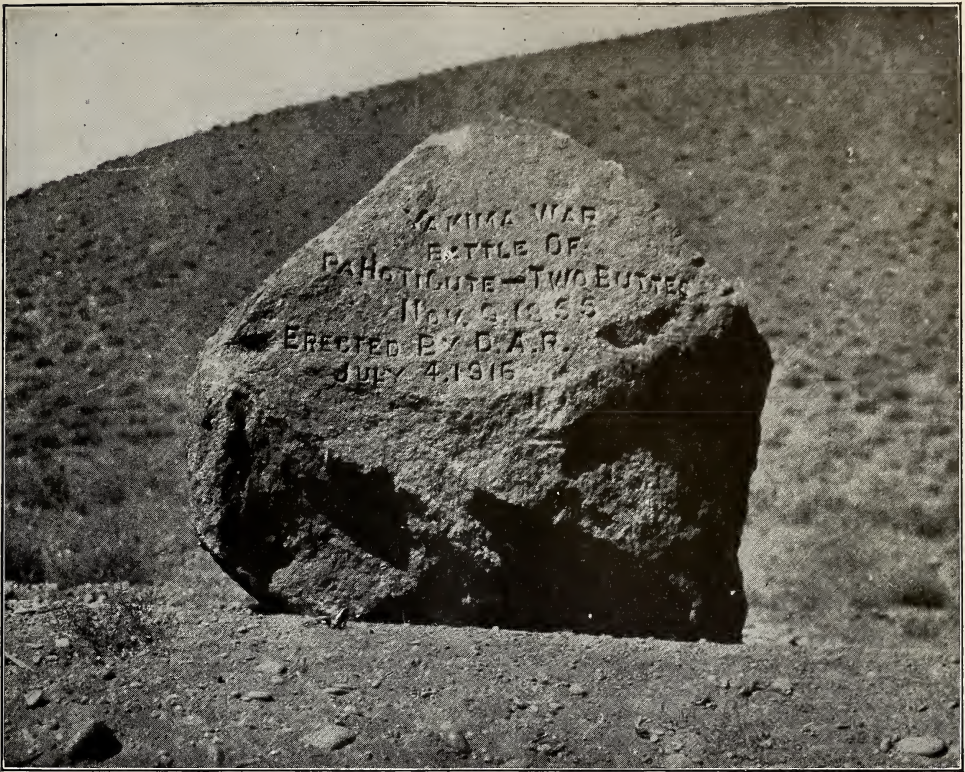 YAKIMA WAR
BATTLE OF
PAHOTICUTE—TWO BUTTES
NOV. 9. 1855
ERECTED BY D.A.R.
JULY 4. 1916